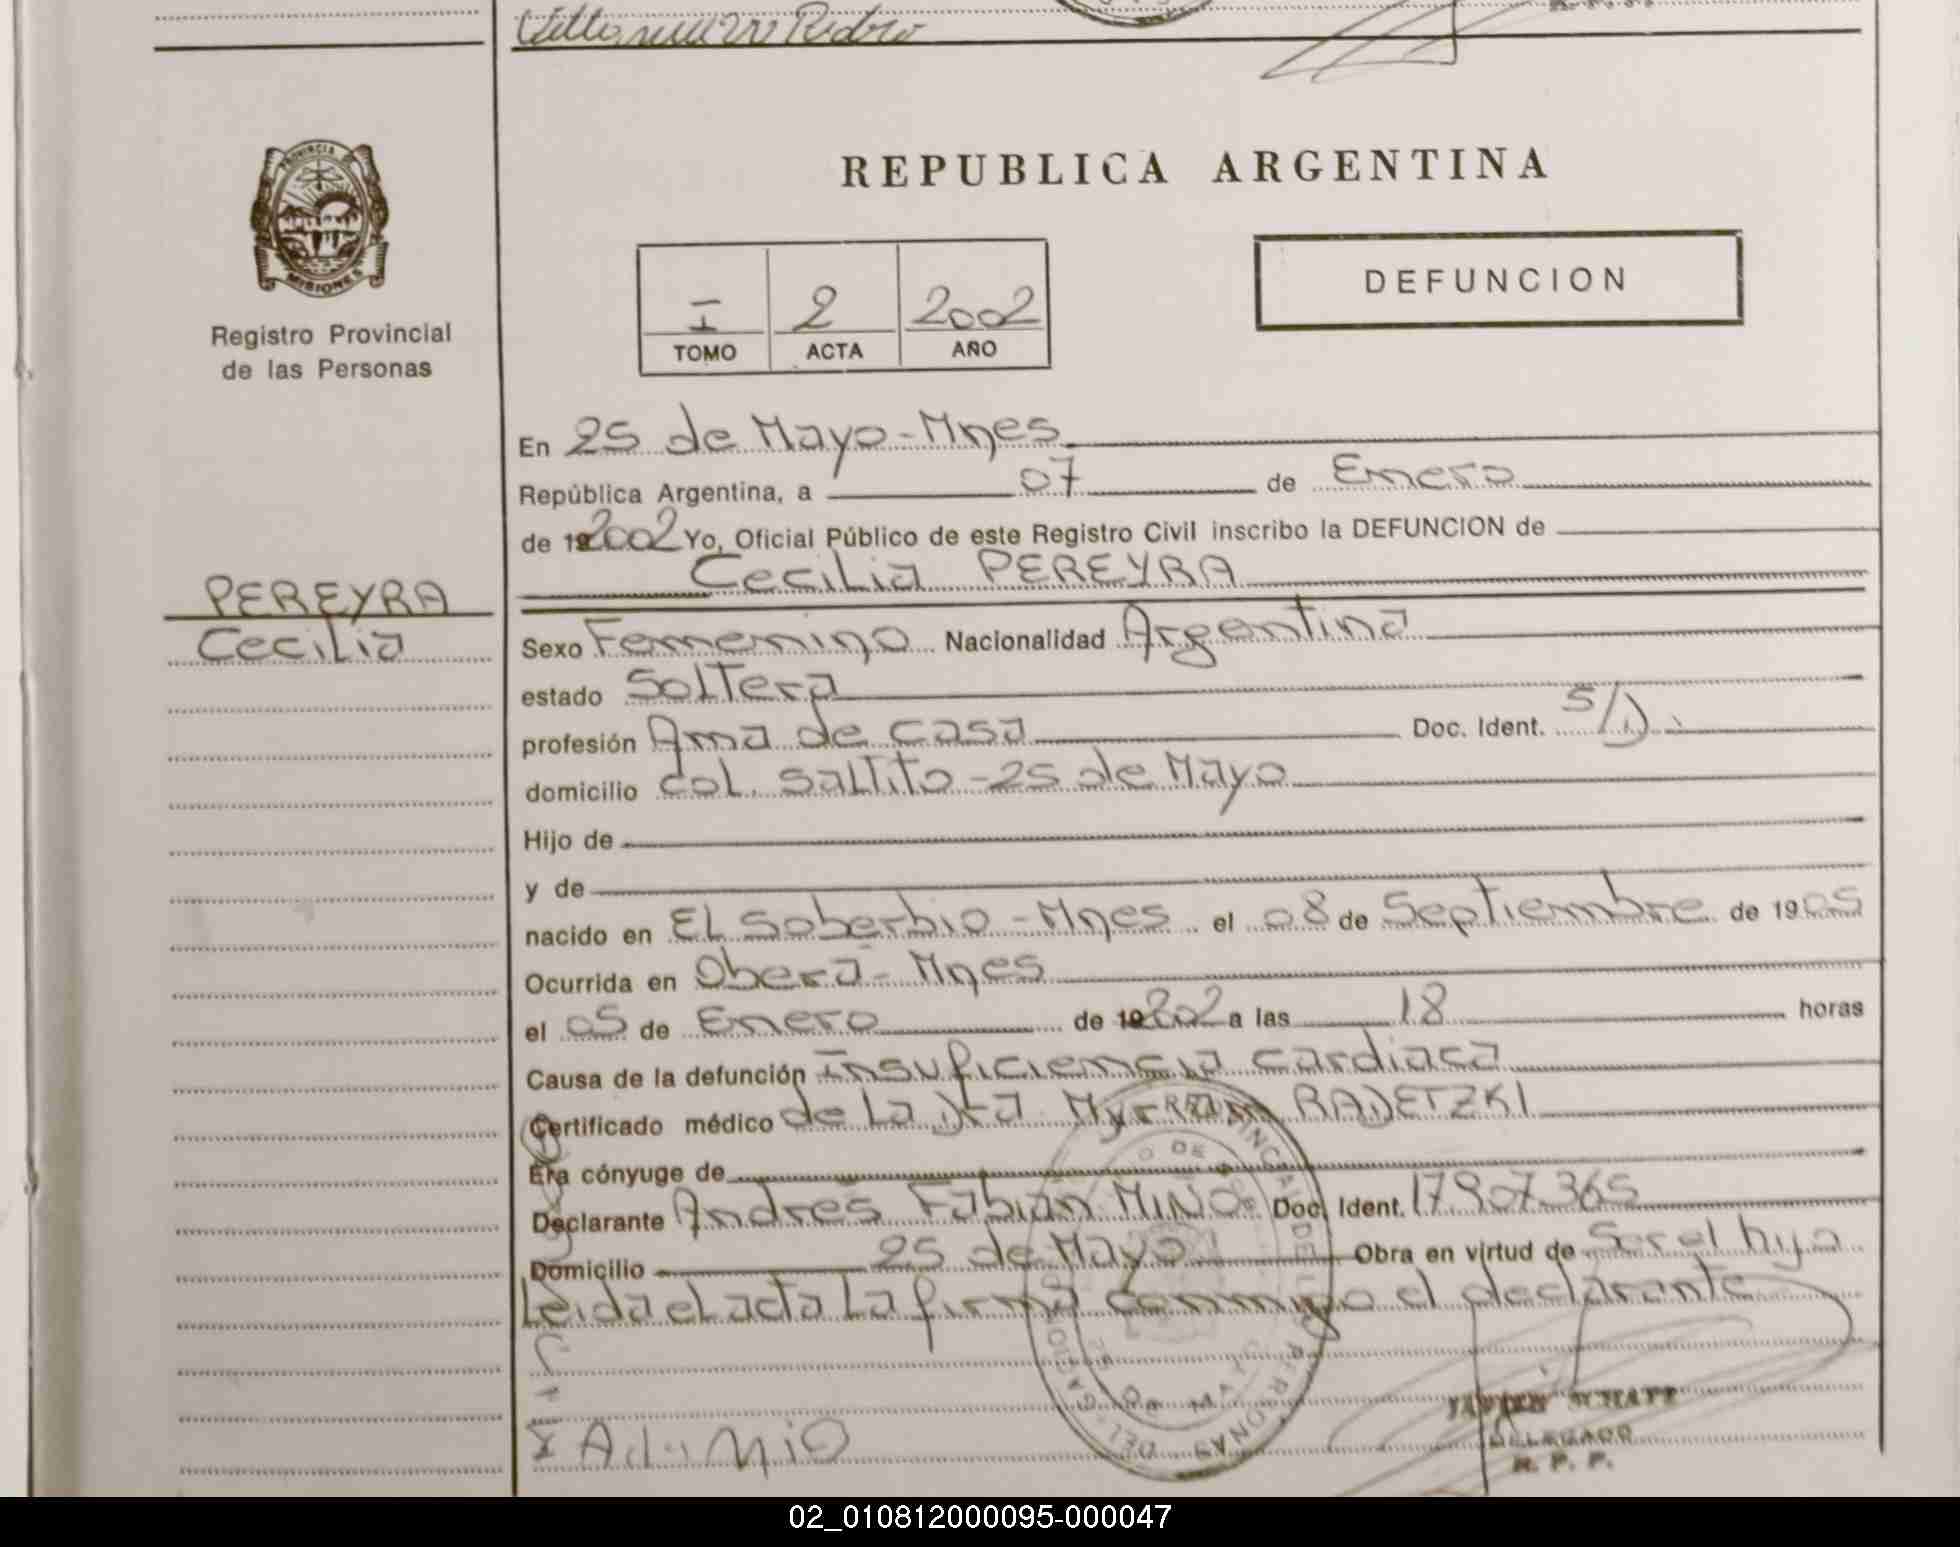 Pedro
PROVINCIA DE
MISIONES
Registro Provincial
de las Personas
REPUBLICA ARGENTINA
I 2 2002
TOMO ACTA AÑO
DEFUNCION
En 25 de Mayo - Mnes
República Argentina, a 07 de Enero
de 192002 Yo, Oficial Público de este Registro Civil inscribo la DEFUNCION de
Cecilia PEREYRA
PEREYRA
Cecilia
Sexo Femenino Nacionalidad Argentina
estado Soltera
profesión Ama de casa Doc. Ident. S/D.
domicilio Col. Saltito - 25 de Mayo
Hijo de
y de
nacido en El Soberbio - Mnes el 08 de Septiembre de 1905
Ocurrida en Oberá - Mnes
el 05 de Enero de 192002 a las 18 horas
Causa de la defunción Insuficiencia cardiaca
Certificado médico de la Dra Myrian RADETZKI
Era cónyuge de
Declarante Andrés Fabián MINO Doc. Ident. 17.907.365
Domicilio 25 de Mayo Obra en virtud de Ser el hijo
Leida el acta la firma conmigo el declarante
JAVIER SCHATZ
DELEGADO
R. P. P.
02_010812000095-000047